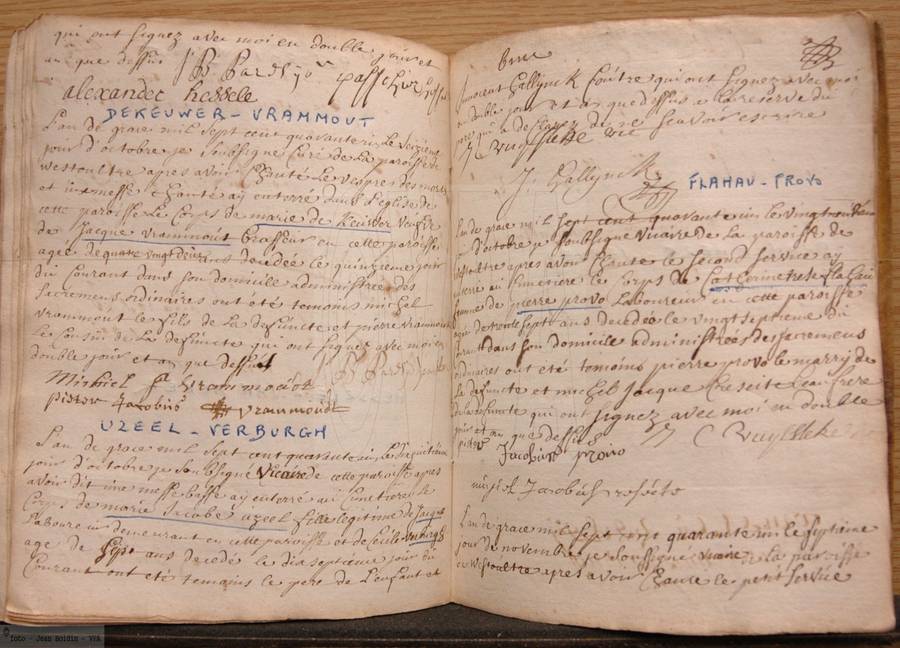 qui ont signez avec moi en double jour et
an que dessus J B Bardl pasteur
alexander hessele
DEKEUWER - VRAMMOUT
L'an de grace mil sept cent quarante un le
jour d'octobre je soubsigné Curé de la paroisse de
westoultre apres avoir Chanté le vespre des morts
et une messe Chanté ay enterré dans l'eglise de
cette paroisse Le Corps de marie de Keuwer veufve
de Jacque vrammout brasseur en cette paroisse
agée de quatre vingt deux ans decedée le quinzieme jour
du Courant dans son domicile administrée des
Sacremens ordinaires ont été temoins michel
vrammout le fils de La defuncte et pierre vrammout
Le Cousin de La defuncte qui ont signez avec moi en
double jour et an que dessus
Michiel vrammoudt
pieter Jacobus vrammoudt
UZEEL - VERBURGH
L'an de grace mil sept cent quarante un le
jour d'octobre je soubsigné vicaire de cette paroisse apres
avoir dit une messe basse ay enterré au Cimetiere le
Corps de marie Jacobe uzeel fille legitime de Jacque
Laboureur demeurant en cette paroisse et de Cecile verburgh
agé de sept ans decedé le diaseptieme jour du
Courant ont été temoins le pere de L'enfant et
Innocent Gallynck Coutre qui ont signez avec moi
en double jour et an que dessus a la reserve du
pere qui a declaré de ne scavoir escrire
J C vuylsteke vic
J. Gallynck
FLAHAU - PROVO
L'an de grace mil sept cent quarante un le vingt
d'octobre je soubsigné vicaire de La paroisse de
westoultre apres avoir Chanté le second service ay
enterré au Cimetiere le Corps de Catherine Flahau
femme de pierre provo Laboureur en cette paroisse
agée de trente sept ans decedée le vingt septieme du
Courant dans son domicile administrée des sacremens
ordinaires ont été temoins pierre provo le marry de
La defuncte et michel Jacque beaufrere
de La defuncte qui ont signez avec moi en double
jour et an que dessus J C vuylsteke
pieter Jacobus provo
michel Jacobus
L'an de grace mil sept cent quarante un le septieme
jour de novembre je soussigné vicaire de la paroisse
de westoultre apres avoir Chanté le petit service
© foto - Jean Boldin - VVA